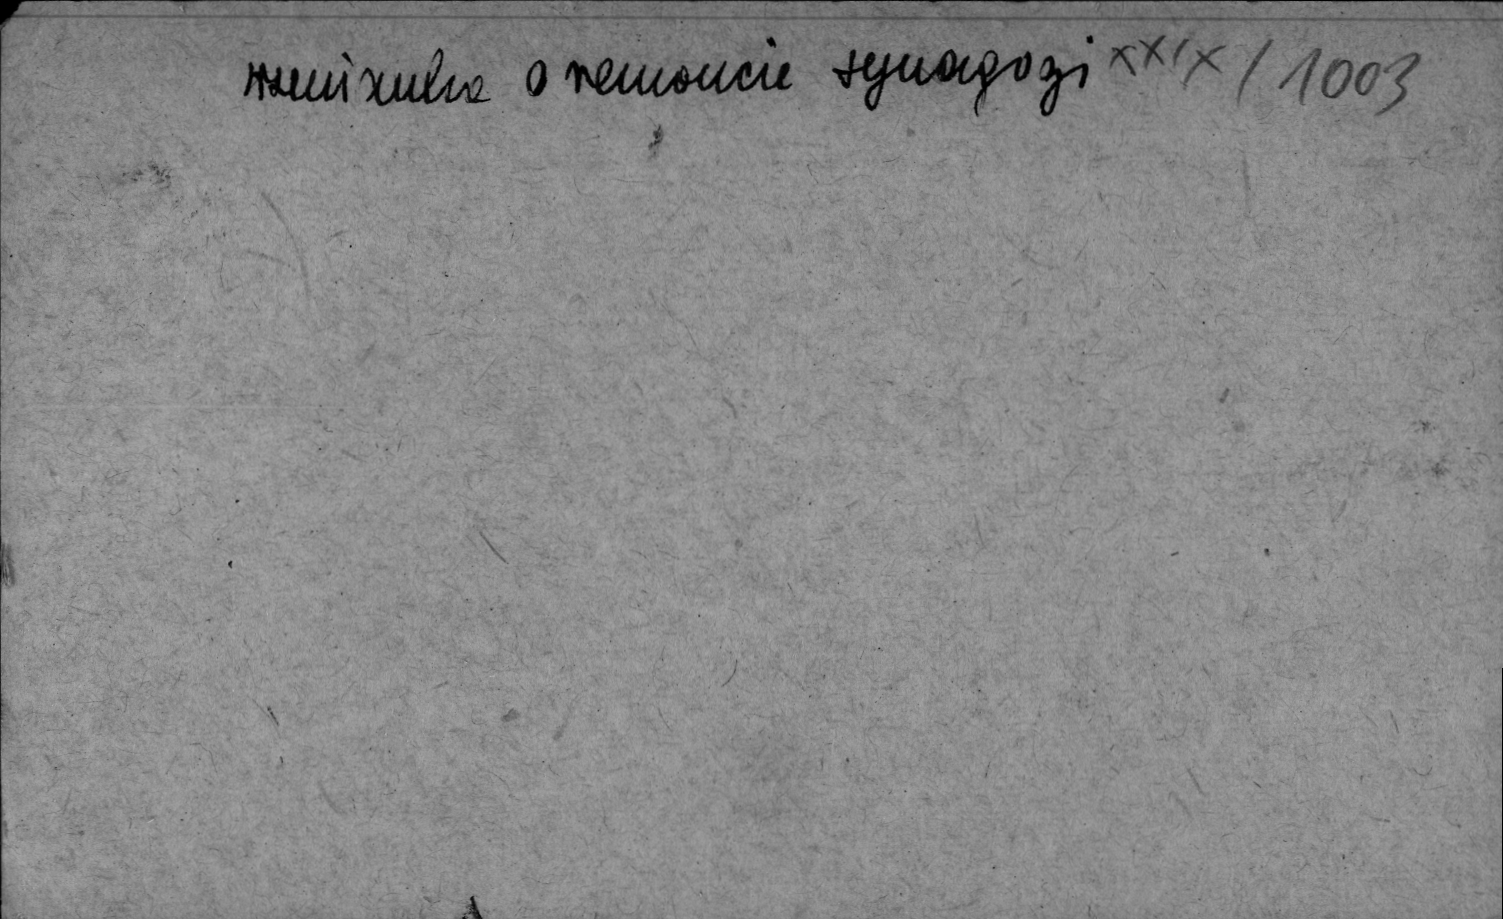 wzmianka o remoncie synagogi XXIX/1003